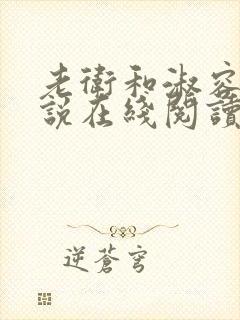 老衛和淑容
說在綫閱讀
逆蒼穹